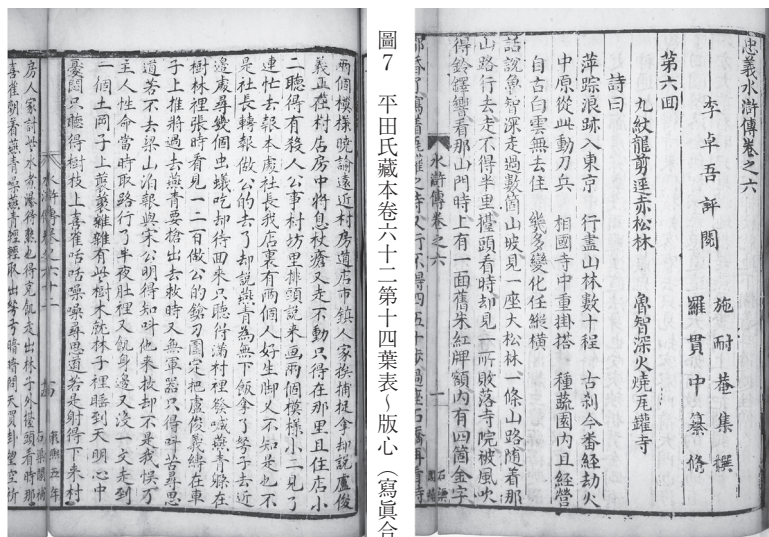 忠義水滸傳卷之六
施耐菴集撰
李卓吾評閱
羅貫中纂脩
第六回
九紋龍剪逕赤松林　魯智深火燒瓦罐寺
詩曰
萍踪浪跡入東京　行盡山林數十程　古剎今番經劫火
中原從此動刀兵　相國寺中重掛搭　種蔬園內且經營
自古白雲無去住　幾多變化任縱橫
話說魯智深走過數箇山坡見一座大松林一條山路隨着那
山路行去走不得半里擡頭看時却見一所敗落寺院被風吹
得鈴鐸響看那山門時上有一面舊朱紅牌額內有四箇金字
都昏了寫着瓦罐之寺又行不得四五十步過座石橋再看時
水滸傳卷之六　一　石渠閣補
圖7　平田氏藏本卷六十二第十四葉表～版心（寫眞合
兩個模樣曉諭遠近村房道店市鎮人家挨捕捉拿却說盧俊
義正在村店房中將息杖瘡又走不動只得在那里且住店小
二聽得有殺人公事村坊里排頭說來画兩個模樣小二見了
連忙去報本處社長我店裏有兩個人好生脚叉不知是也不
是社長轉報做公的去了却說燕青為無下飯拿了弩子去近
邊處尋幾個虫蟻吃却待回來只聽得滿村里發喊燕青躲在
樹林裡張時看見一二百做公的鎗刀圍定把盧俊義縛在車
子上推將過去燕青要搶出去救時又無軍器只得叫苦尋思
道若不去梁山泊報與宋公明得知叫他來救却不是我悞了
主人性命當時取路行了半夜肚裡又飢身邊又沒一文走到
一個土岡子上叢叢雜雜有些樹木就林子裡睡到天明心中
憂悶只聽得樹枝上喜雀咶咶噪噪尋思道若是射得下來村
水滸傳卷六十二　十四　康熙五年石渠閣補
房人家討些水煮瀑得熟也得充飢走出林子外擡頭看時那
喜雀朝着燕青噪燕青輕輕取出弩弓暗暗問天買卦望空祈